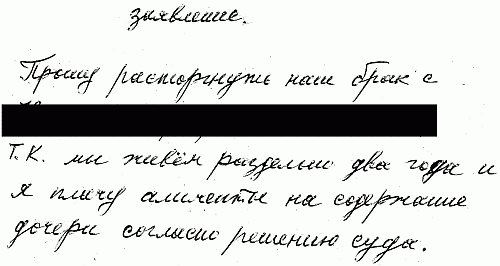 заявление.
Прошу расторгнуть наш брак с
Т.К. мы живём раздельно два года и
я плачу алименты на содержание
дочери согласно решению суда.